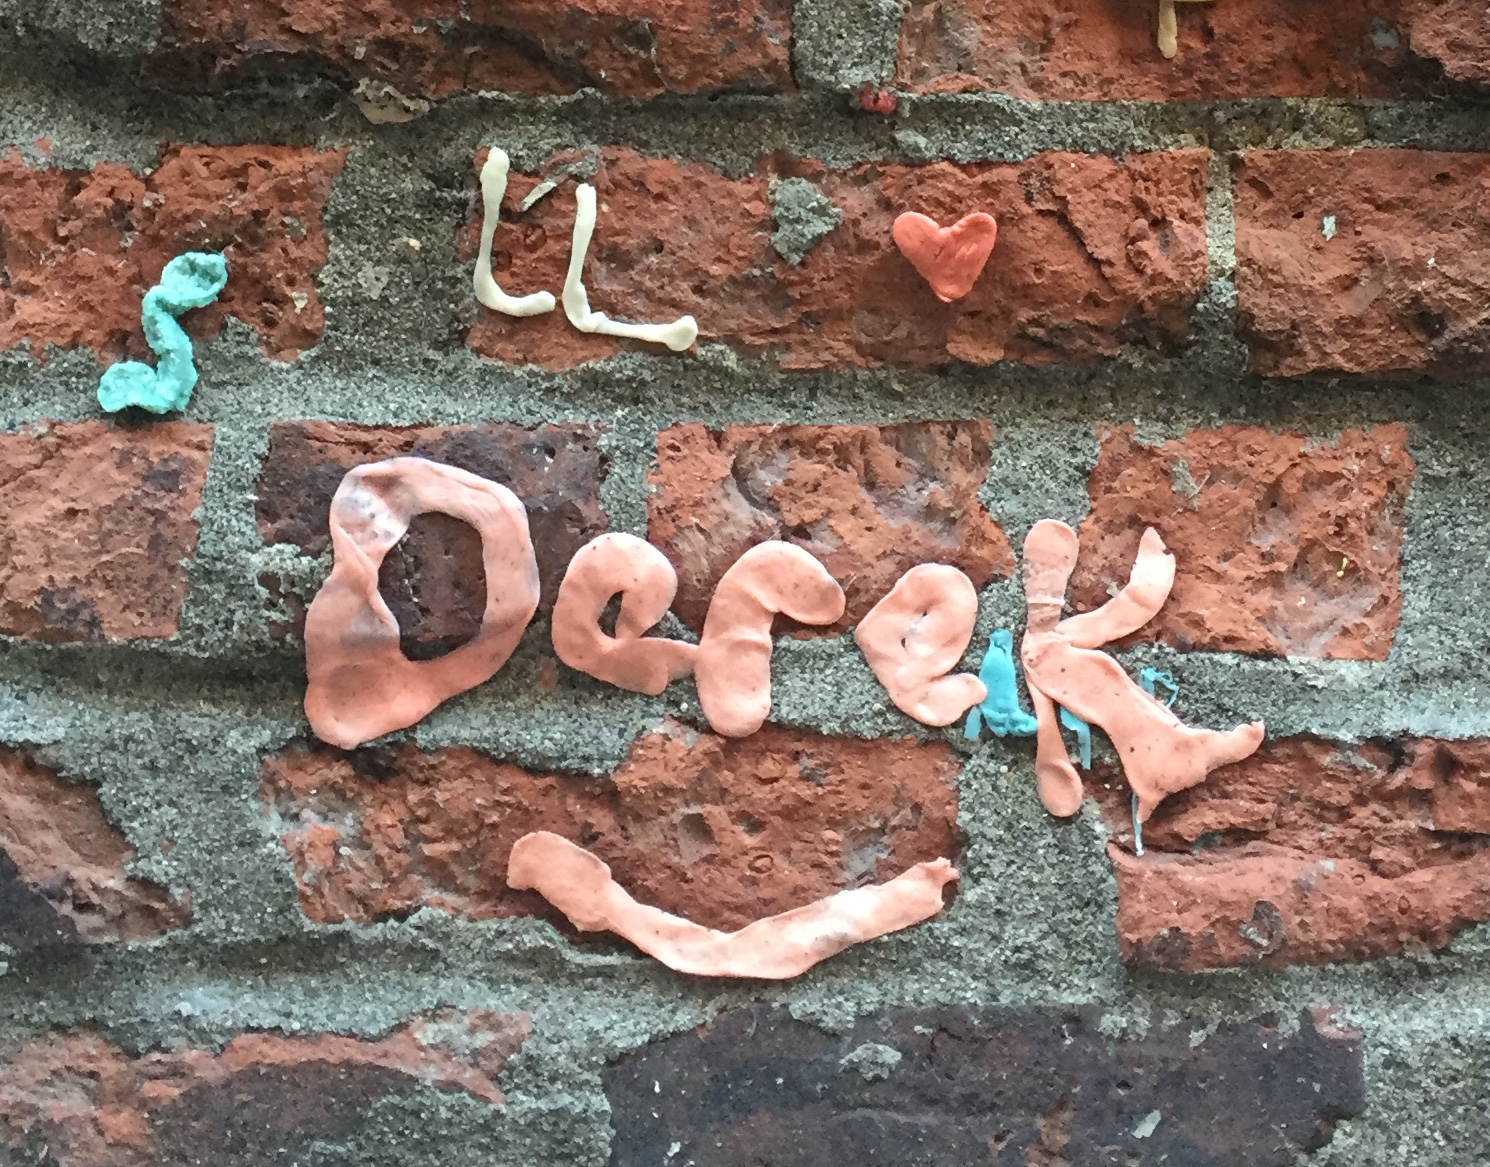 LL ♥
Derek